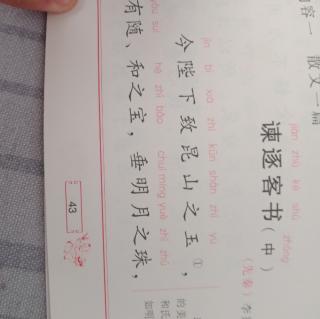 容一 散文二篇
jiàn zhú kè shū zhōng
谏逐客书（中）
（先秦）李
jīn bì xià zhì kūn shān zhī yù
今陛下致昆山之玉①，
yǒu suí hé zhī bǎo chuí míng yuè zhī zhū
有随、和之宝，垂明月之珠，
的美
和氏
如明
43